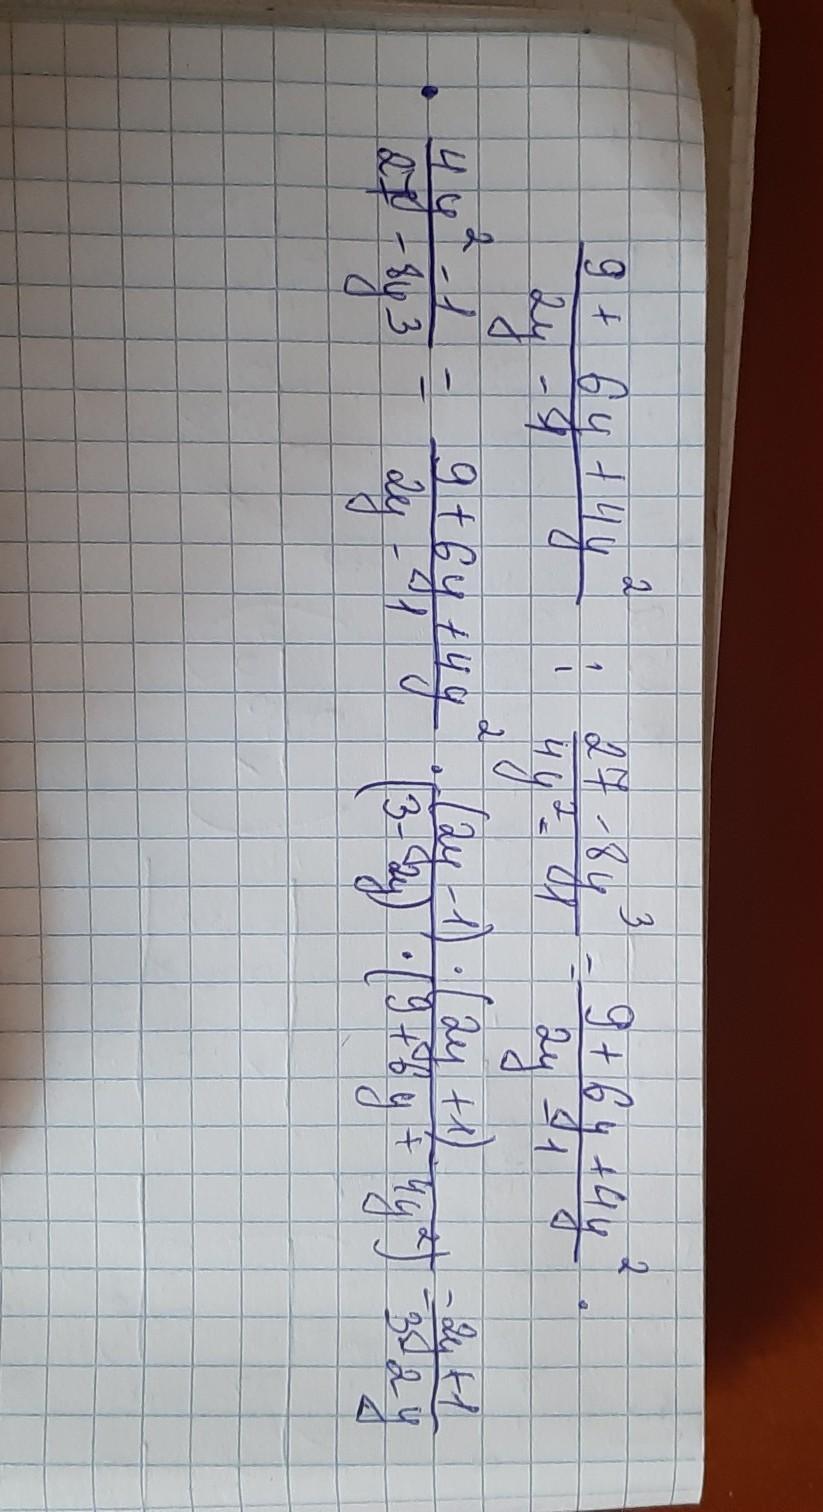 9 + 6y + 4y² / 2y - 1 : 27 - 8y³ / 4y² - 1 = 9 + 6y + 4y² / 2y - 1 ·
· 4y² - 1 / 27 - 8y³ = 9 + 6y + 4y² / 2y - 1 · (2y - 1) · (2y + 1) / (3 - 2y) · (9 + 6y + 4y²) = 2y + 1 / 3 - 2y